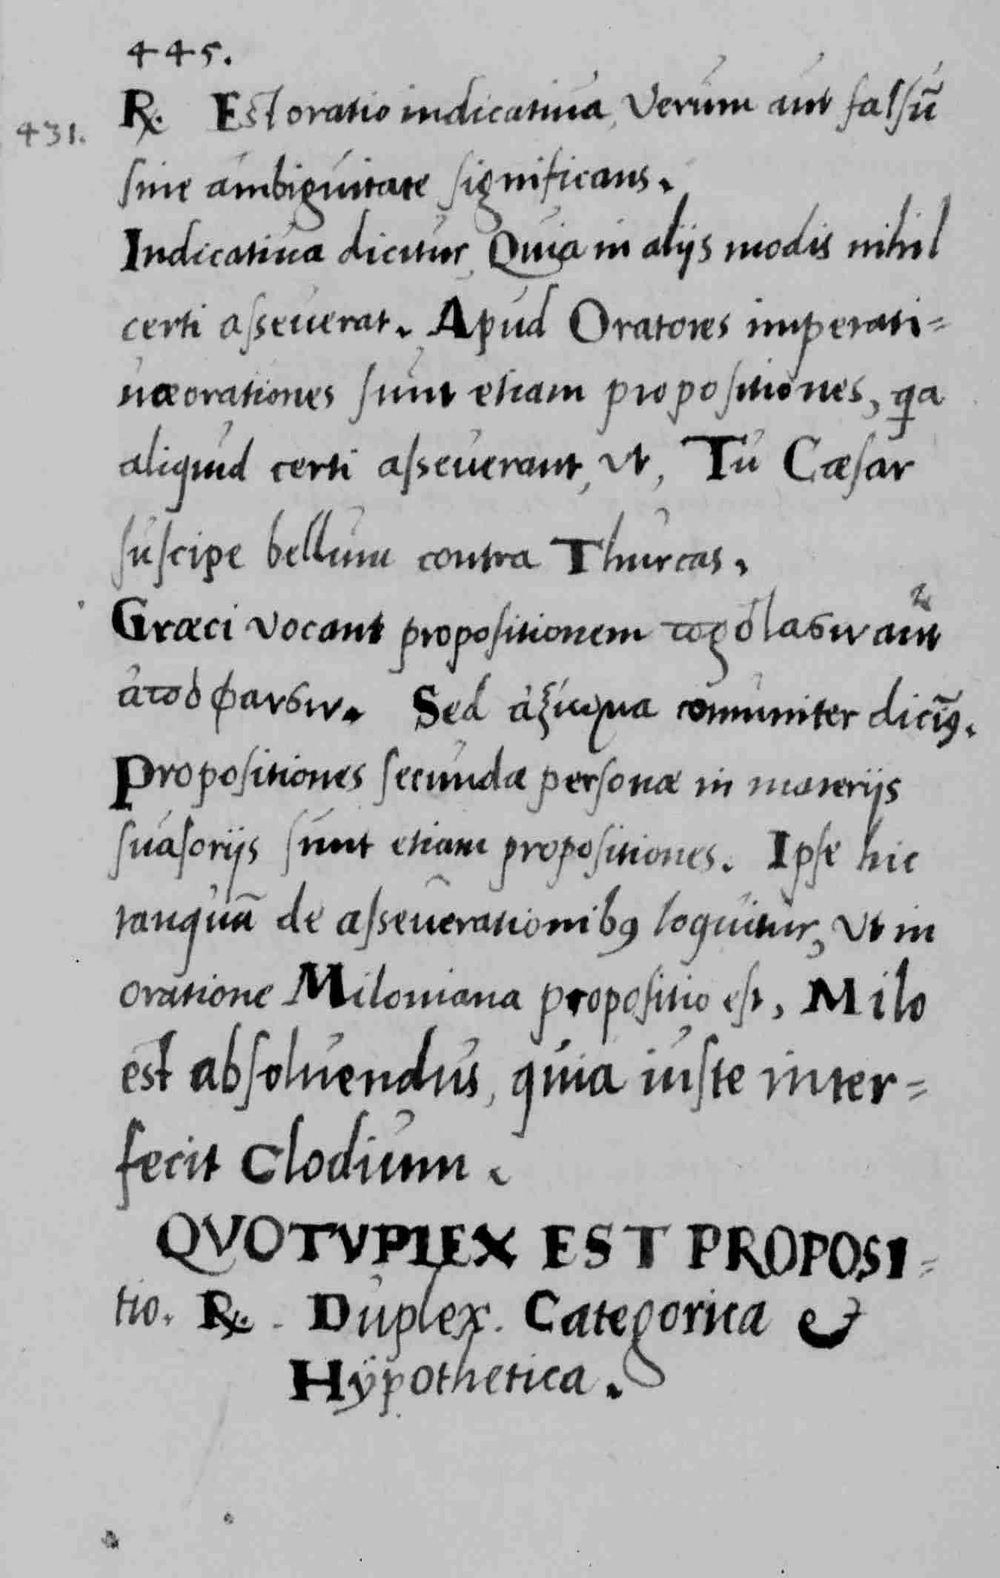 445.
431. ℞. Est oratio indicatiua, Verum aut falsū
sine ambiguitate significans.
Indicatiua dicitur, Quia in alijs modis nihil
certi asseuerat. Apud Oratores imperati=
uæ orationes sunt etiam propositiones, qa
aliquid certi asseuerant, ut, Tu Cæsar
suscipe bellum contra Thurcas.
Græci vocant propositionem πρότασιν aut
ἀπόφανσιν. Sed ἀξίωμα comuniter dicimꝰ.
Propositiones secundæ personæ in materijs
suasorijs sunt etiam propositiones. Ipse hic
tanquā de asseuerationibꝰ loquitur, Vt in
oratione Miloniana propositio est, Milo
est absoluendus, quia iuste inter=
fecit Clodium.
QVOTVPLEX EST PROPOSI=
tio. ℞. Duplex. Categorica &
Hÿpothetica.